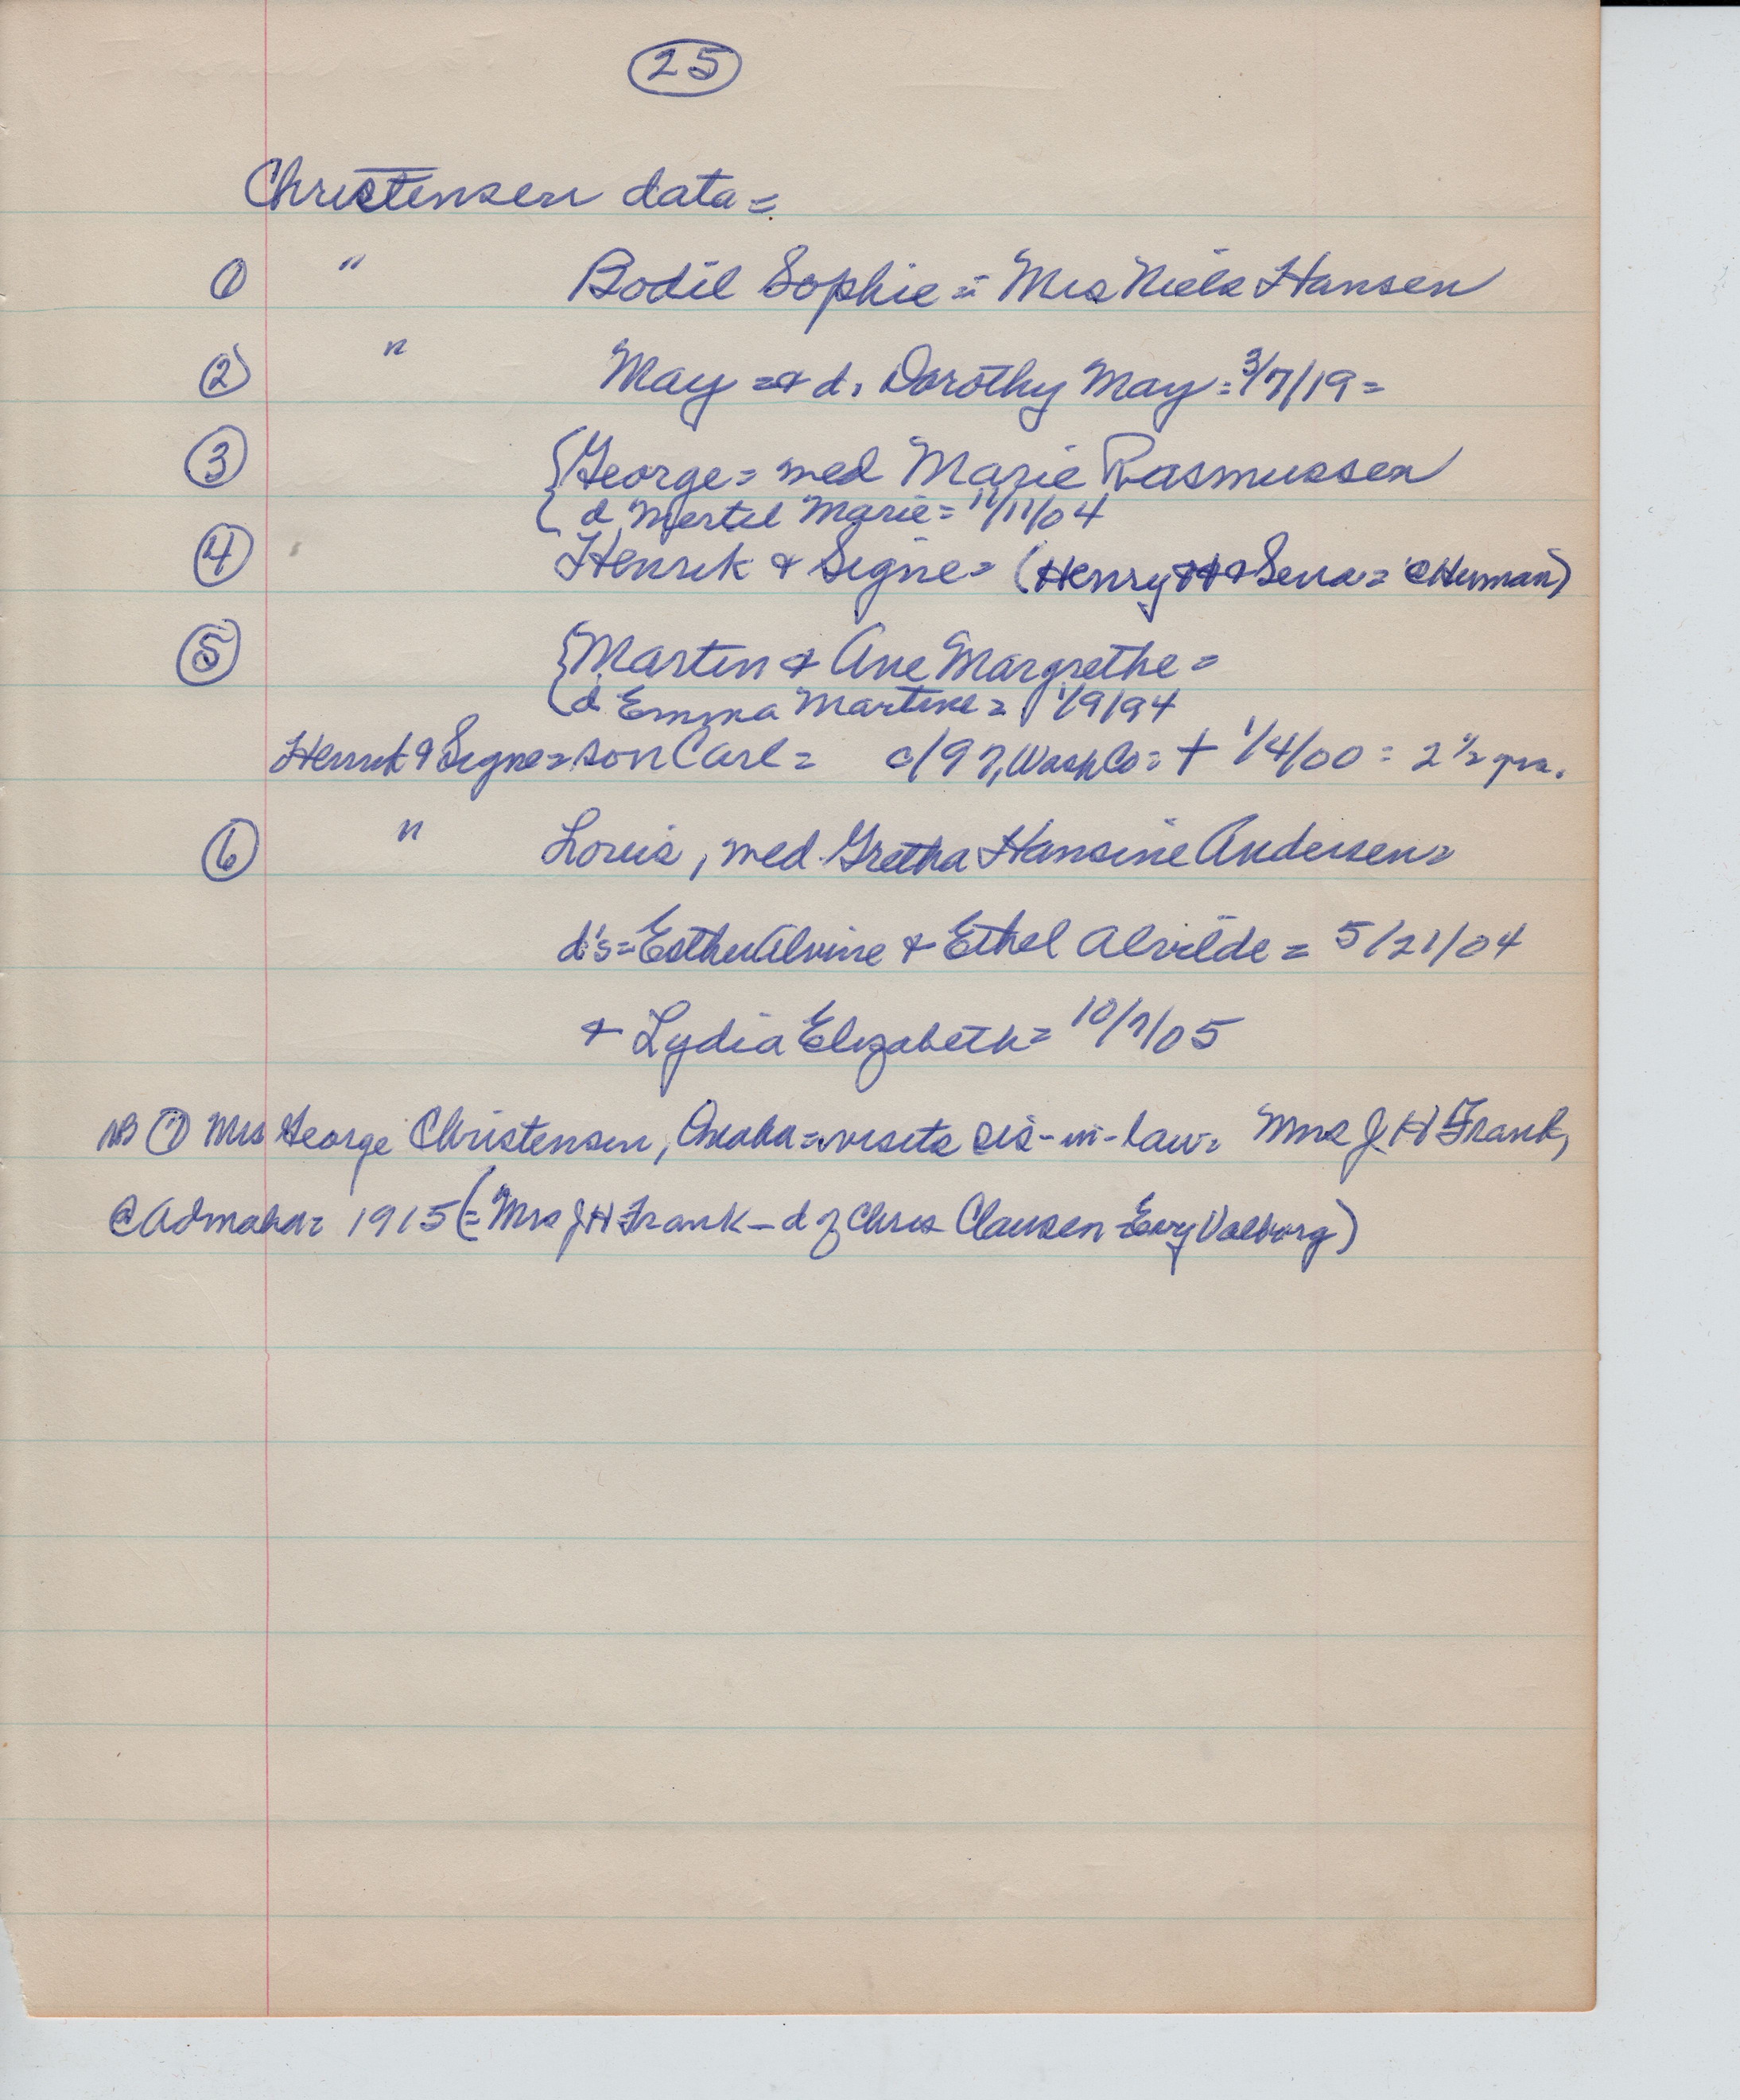 25
Christensen data =
① " Bodil Sophie = Mrs Niels Hansen
② " May = & d. Dorothy May = 3/7/19 =
③ {George = med Marie Rasmussen
{d Mertel Marie = 11/11/04
④ Henrik & Signe = (Henry H & Sena = @ Herman)
⑤ {Martin & Ane Margrethe =
{d Emma Martine = 1/9/94
Henrik & Signe = son Carl = c/97, Wash Co = + 1/4/00 = 2 1/2 yrs.
⑥ " Louis, med Gretha Hansine Andersen =
d's = Esther Alvine & Ethel Alvilde = 5/21/04
& Lydia Elizabeth = 10/7/05
NB ① Mrs George Christensen, Omaha = visits sis-in-law = Mrs J H Frank,
@ Admaha = 1915 (= Mrs J H Frank - d of Chris Clausen - Valborg)